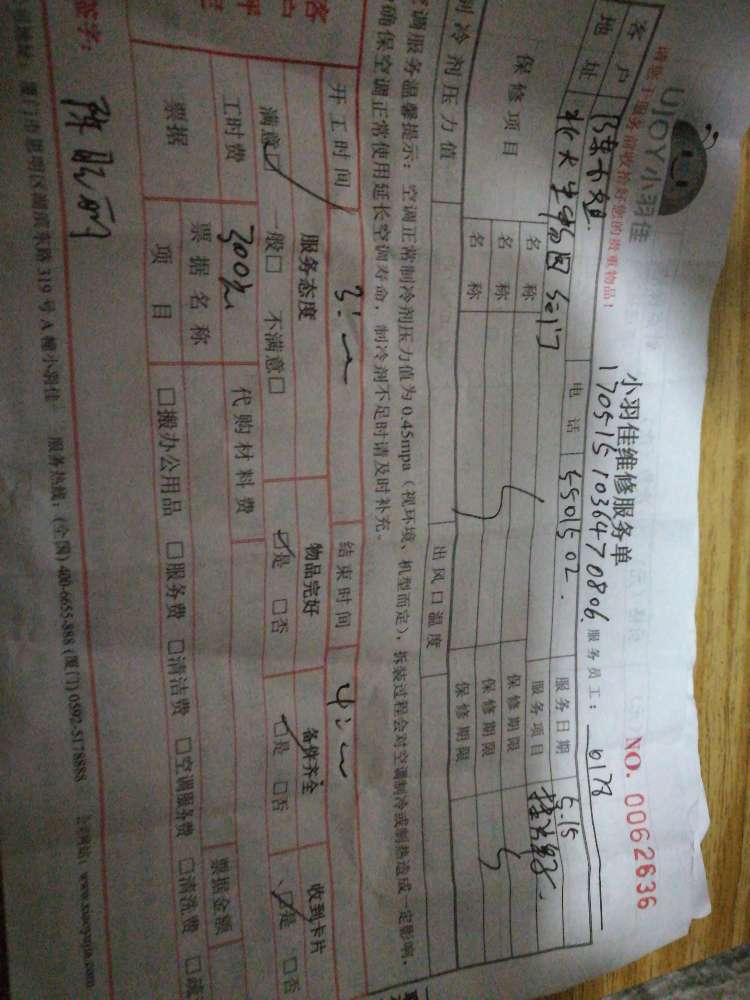 UJOY小羽佳
小羽佳维修服务单
NO. 0062636
请您于服务前收拾好您的贵重物品!
1705151036470806
服务员工: 6178
客户
电话 5501502
服务日期 5.15
地址
服务项目
保修项目
名称
保修期限
名称
保修期限
名称
保修期限
制冷剂压力值
出风口温度
空调服务温馨提示:空调正常制冷剂压力值为0.45mpa(视环境、机型而定),拆装过程会对空调制冷或制热造成一定影响,
确保空调正常使用延长空调寿命,制冷剂不足时请及时补充。
开工时间
结束时间
服务态度
物品完好
备件齐全
收到卡片
满意☑ 一般□ 不满意□
☑是 □否
☑是 □否
☑是 □否
工时费 300元
代购材料费
票据
票据名称
票据金额
项目
□搬办公用品 □服务费 □清洁费 □空调服务费 □清洗费
厦门市思明区湖滨东路319号A幢小羽佳 服务热线:(全国) 400-6655-888 (厦门) 0592-5178888